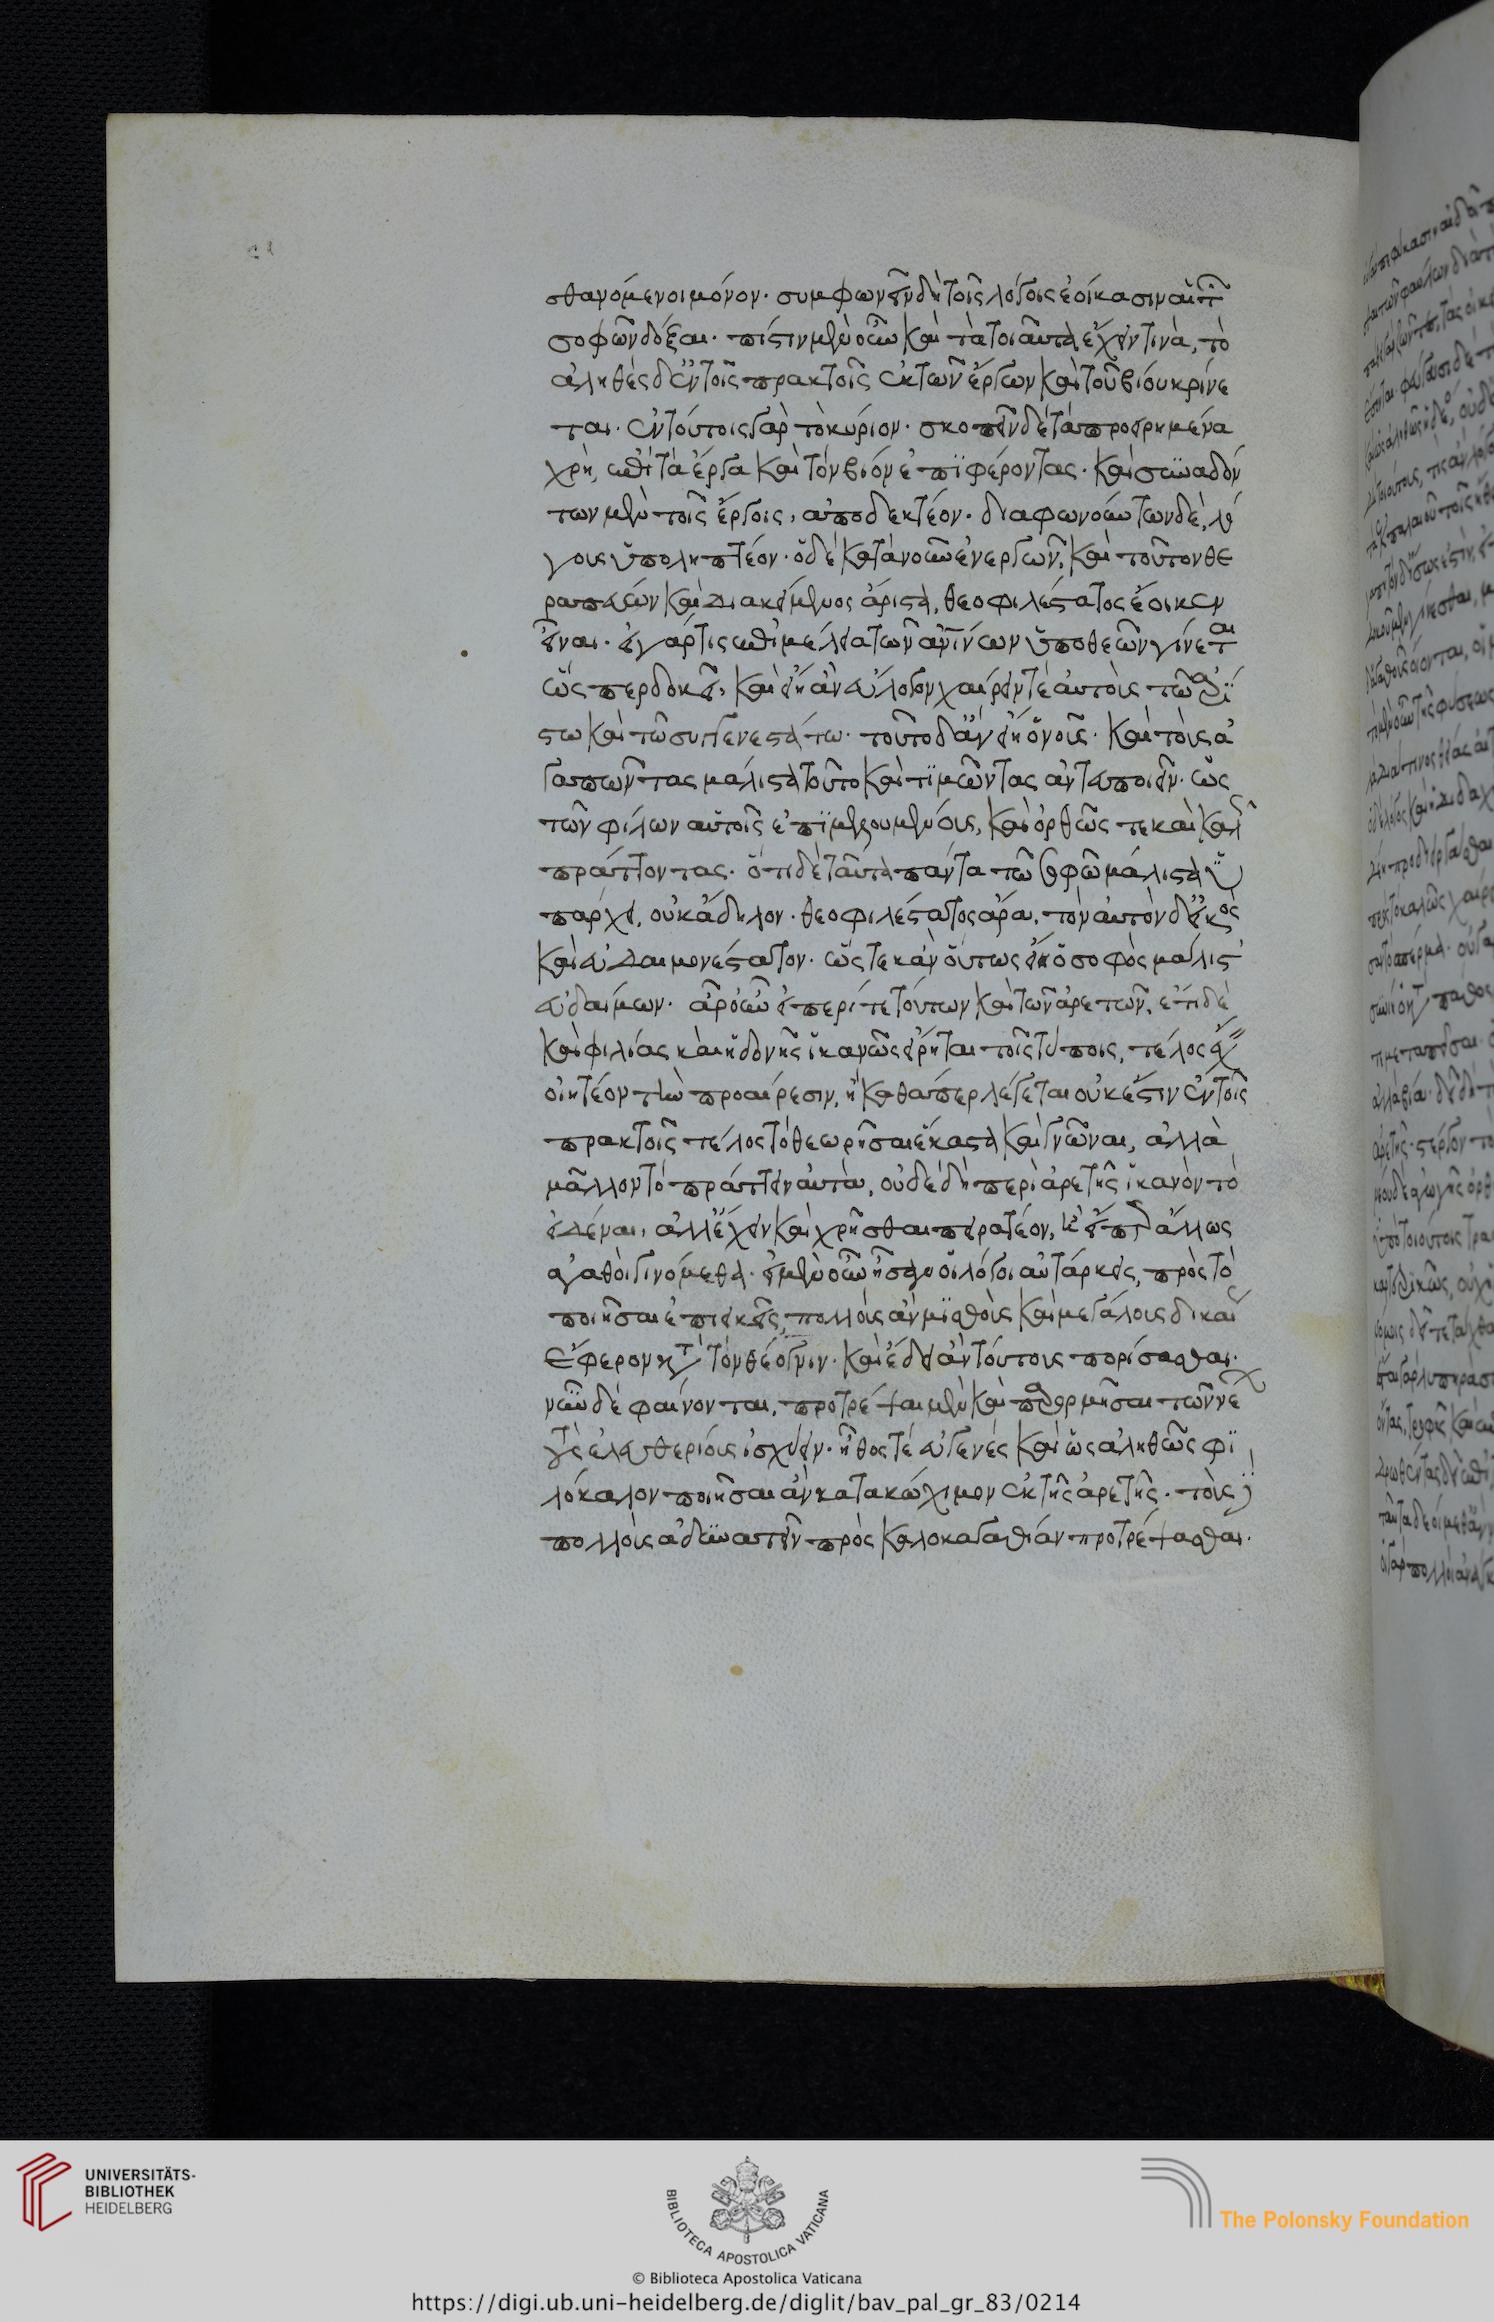 σθανόμενοι μόνον· συμφωνεῖν δὴ τοῖς λόγοις ἐοίκασιν αἱ τῶν
σοφῶν δόξαι· πίστιν μὲν οὖν καὶ τὰ τοιαῦτα ἔχει τινὰ, τὸ
ἀληθὲς δ' ἐν τοῖς πρακτοῖς ἐκ τῶν ἔργων καὶ τοῦ βίου κρίνε
ται· ἐν τούτοις γὰρ τὸ κύριον· σκοπεῖν δὲ τὰ προειρημένα
χρὴ, ἐπὶ τὰ ἔργα καὶ τὸν βίον ἐπιφέροντας· καὶ συναδόν
των μὲν τοῖς ἔργοις, ἀποδεκτέον· διαφωνούντων δὲ, λό
γους ὑποληπτέον· ὁ δὲ κατὰ νοῦν ἐνεργῶν, καὶ τοῦτον θε
ραπεύων καὶ διακείμενος ἄριστα, θεοφιλέστατος ἔοικεν
εἶναι· εἰ γάρ τις ἐπιμέλεια τῶν ἀνθρωπίνων ὑπὸ θεῶν γίνεται
ὥσπερ δοκεῖ, καὶ εἴη ἂν εὔλογον χαίρειν τε αὐτοὺς τῷ ἀρί
στῳ καὶ τῷ συγγενεστάτῳ· τοῦτο δ' ἂν εἴη ὁ νοῦς· καὶ τοὺς ἀ
γαπῶντας μάλιστα τοῦτο καὶ τιμῶντας ἀντευποιεῖν· ὡς
τῶν φίλων αὐτοῖς ἐπιμελουμένους, καὶ ὀρθῶς τε καὶ καλῶς
πράττοντας· ὅτι δὲ ταῦτα πάντα τῷ σοφῷ μάλιστα ὑ
πάρχει, οὐκ ἄδηλον· θεοφιλέστατος ἄρα, τὸν αὐτὸν δ' εἰκὸς
καὶ εὐδαιμονέστατον· ὥστε κἂν οὕτως εἴη ὁ σοφὸς μάλιστ
εὐδαίμων· ἆρ' οὖν εἰ περί τε τούτων καὶ τῶν ἀρετῶν, ἔτι δὲ
καὶ φιλίας καὶ ἡδονῆς ἱκανῶς εἴρηται τοῖς τύποις, τέλος ἔχειν
οἰητέον τὴν προαίρεσιν, ἢ καθάπερ λέγεται οὐκ ἔστιν ἐν τοῖς
πρακτοῖς τέλος τὸ θεωρῆσαι ἕκαστα καὶ γνῶναι, ἀλλὰ
μᾶλλον τὸ πράττειν αὐτά, οὐδὲ δὴ περὶ ἀρετῆς ἱκανὸν τὸ
εἰδέναι, ἀλλ' ἔχειν καὶ χρῆσθαι πειρατέον, ἢ εἴ πως ἄλλως
ἀγαθοὶ γινόμεθα· εἰ μὲν οὖν ἦσαν οἱ λόγοι αὐτάρκεις, πρὸς τὸ
ποιῆσαι ἐπιεικεῖς, πολλοὺς ἂν μισθοὺς καὶ μεγάλους δικαίως
ἔφερον κατὰ τὸν θέογνιν· καὶ ἔδει ἂν τούτους πορίσασθαι·
νῦν δὲ φαίνονται, προτρέψαι μὲν καὶ παρορμῆσαι τῶν νέων
τοὺς ἐλευθερίους ἰσχύειν· ἦθος τε εὐγενὲς καὶ ὡς ἀληθῶς φι
λόκαλον ποιῆσαι ἂν κατακώχιμον ἐκ τῆς ἀρετῆς· τοὺς δὲ
πολλοὺς ἀδυνατεῖν πρὸς καλοκαγαθίαν προτρέψασθαι·
UNIVERSITÄTS-
BIBLIOTHEK
HEIDELBERG
BIBLIOTECA APOSTOLICA VATICANA
The Polonsky Foundation
© Biblioteca Apostolica Vaticana
https://digi.ub.uni-heidelberg.de/diglit/bav_pal_gr_83/0214